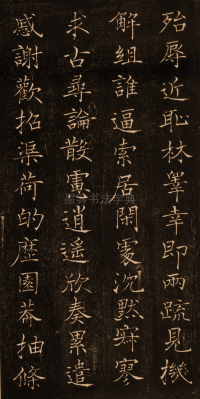 殆辱近恥林睾幸即兩疏見機
解組誰逼索居閑處沉默寂寥
求古尋論散慮逍遙欣奏累遣
慼謝歡招渠荷的歷園莽抽條